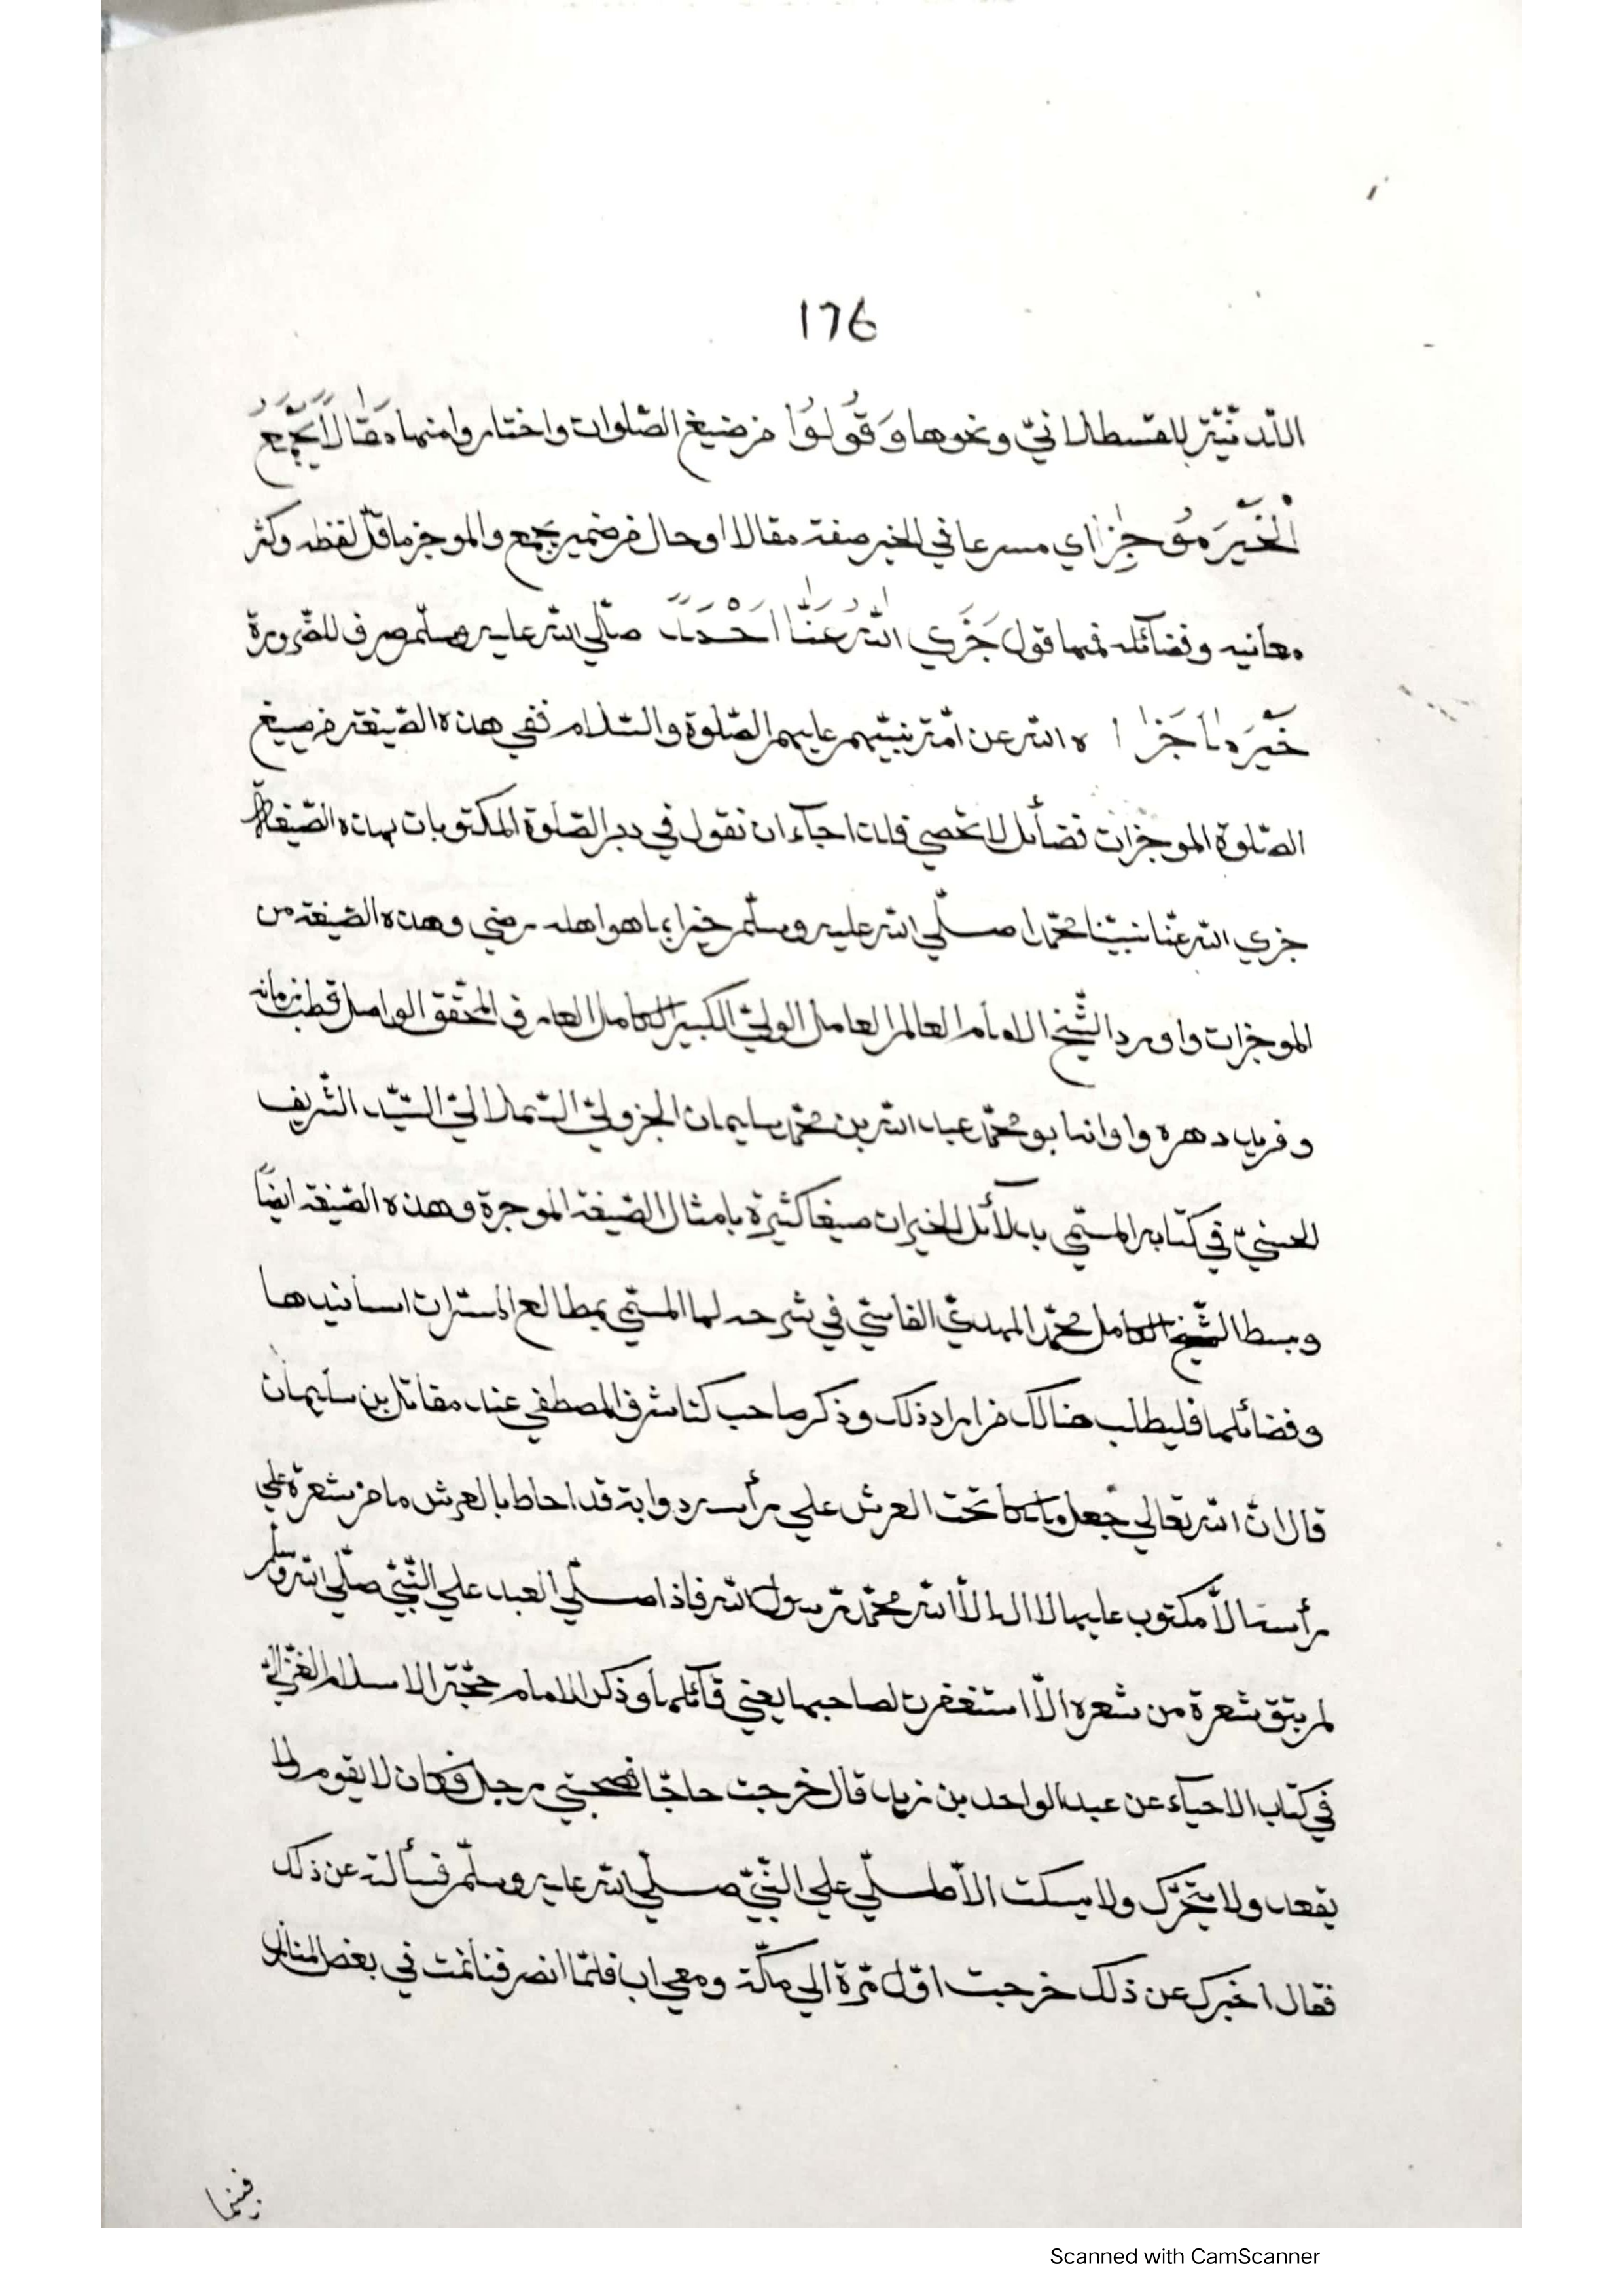 176
اللّدنّيّة للقسطلانيّ ونحوها وَقُولُوا من صيغ الصّلوات واختاروا منها مَقَالاً يَجْمَعُ
الْخَيْرَ مُوجِزًا اي مسرعا في الخير صفة مقالا او حال من ضمير يجمع والموجز ما قلّ لفظه وكثر
معانيه وفضآئله فمها قول جَزَي اللّٰهُ عَنَّا اَحْمَدًا صلّي اللّه عليه وسلّم صرف للضّرورة
خَيْرَ مَا جَزَا ه اللّه عن امّة نبيّهم عليهم الصّلوة والسّلام ففي هذه الصّيغة من صيغ
الصّلوة الموجزات فضآئل لا تحصي فلذا جآء ان نقول في دبر الصّلوة المكتوبات بهذه الصّيغة
جزي اللّه عنّا نبيّنا محمّدا صلّي اللّه عليه وسلّم خيرا بما هو اهله رضي وهذه الصّيغة من
الموجزات واورد الشّيخ الامام العالم العامل الوليّ الكبير الكامل العارف المحقّق الواصل قطب زمانه
وفريد دهره واوانه ابو محمّد عبد اللّه بن محمّد سليمان الجزوليّ السّملاليّ السّيّد الشّريف
الحسنيّ في كتابه المسمّي بدلآئل الخيرات صيغا كثيرة بامثال الصّيغة الموجزة وهذه الصّيغة ايضًا
وبسط الشّيخ الكامل محمّد المهديّ الفاسيّ في شرحه لها المسمّي بمطالع المسرّات اسانيدها
وفضائلها فليطلب هنالك من اراد ذلك وذكر صاحب كتا شرف المصطفي عند مقاتل بن سليمان
قال انّ اللّه تعالي جعل ملكا تحت العرش علي رأسه دوابة قد احاط بالعرش ما من شعرة علي
رأسه الاّ مكتوب عليها لا اله الاّ اللّه محمّد رسول اللّه فاذا صلّي العبد علي النّبيّ صلّي اللّه وسلم
لم يبق شعرة من شعره الاّ استغفرت لصاحبها يعني قآئلها وذكر الامام حجّة الاسلام الغزاليّ
في كتاب الاحيآء عن عبد الواحد بن زيد قال خرجت حاجّا فصحبني رجل فكان لا يقوم ولا
يقعد ولا يتحرّك ولا يسكت الاّ صلّي علي النّبيّ صلّي اللّه عليه وسلّم فسألته عن ذلك
فقال اخبرك عن ذلك خرجت اوّل مرّة الي مكّة ومعي اب فلمّا انصرفنا نمت في بعض المنازل
فبينما
Scanned with CamScanner